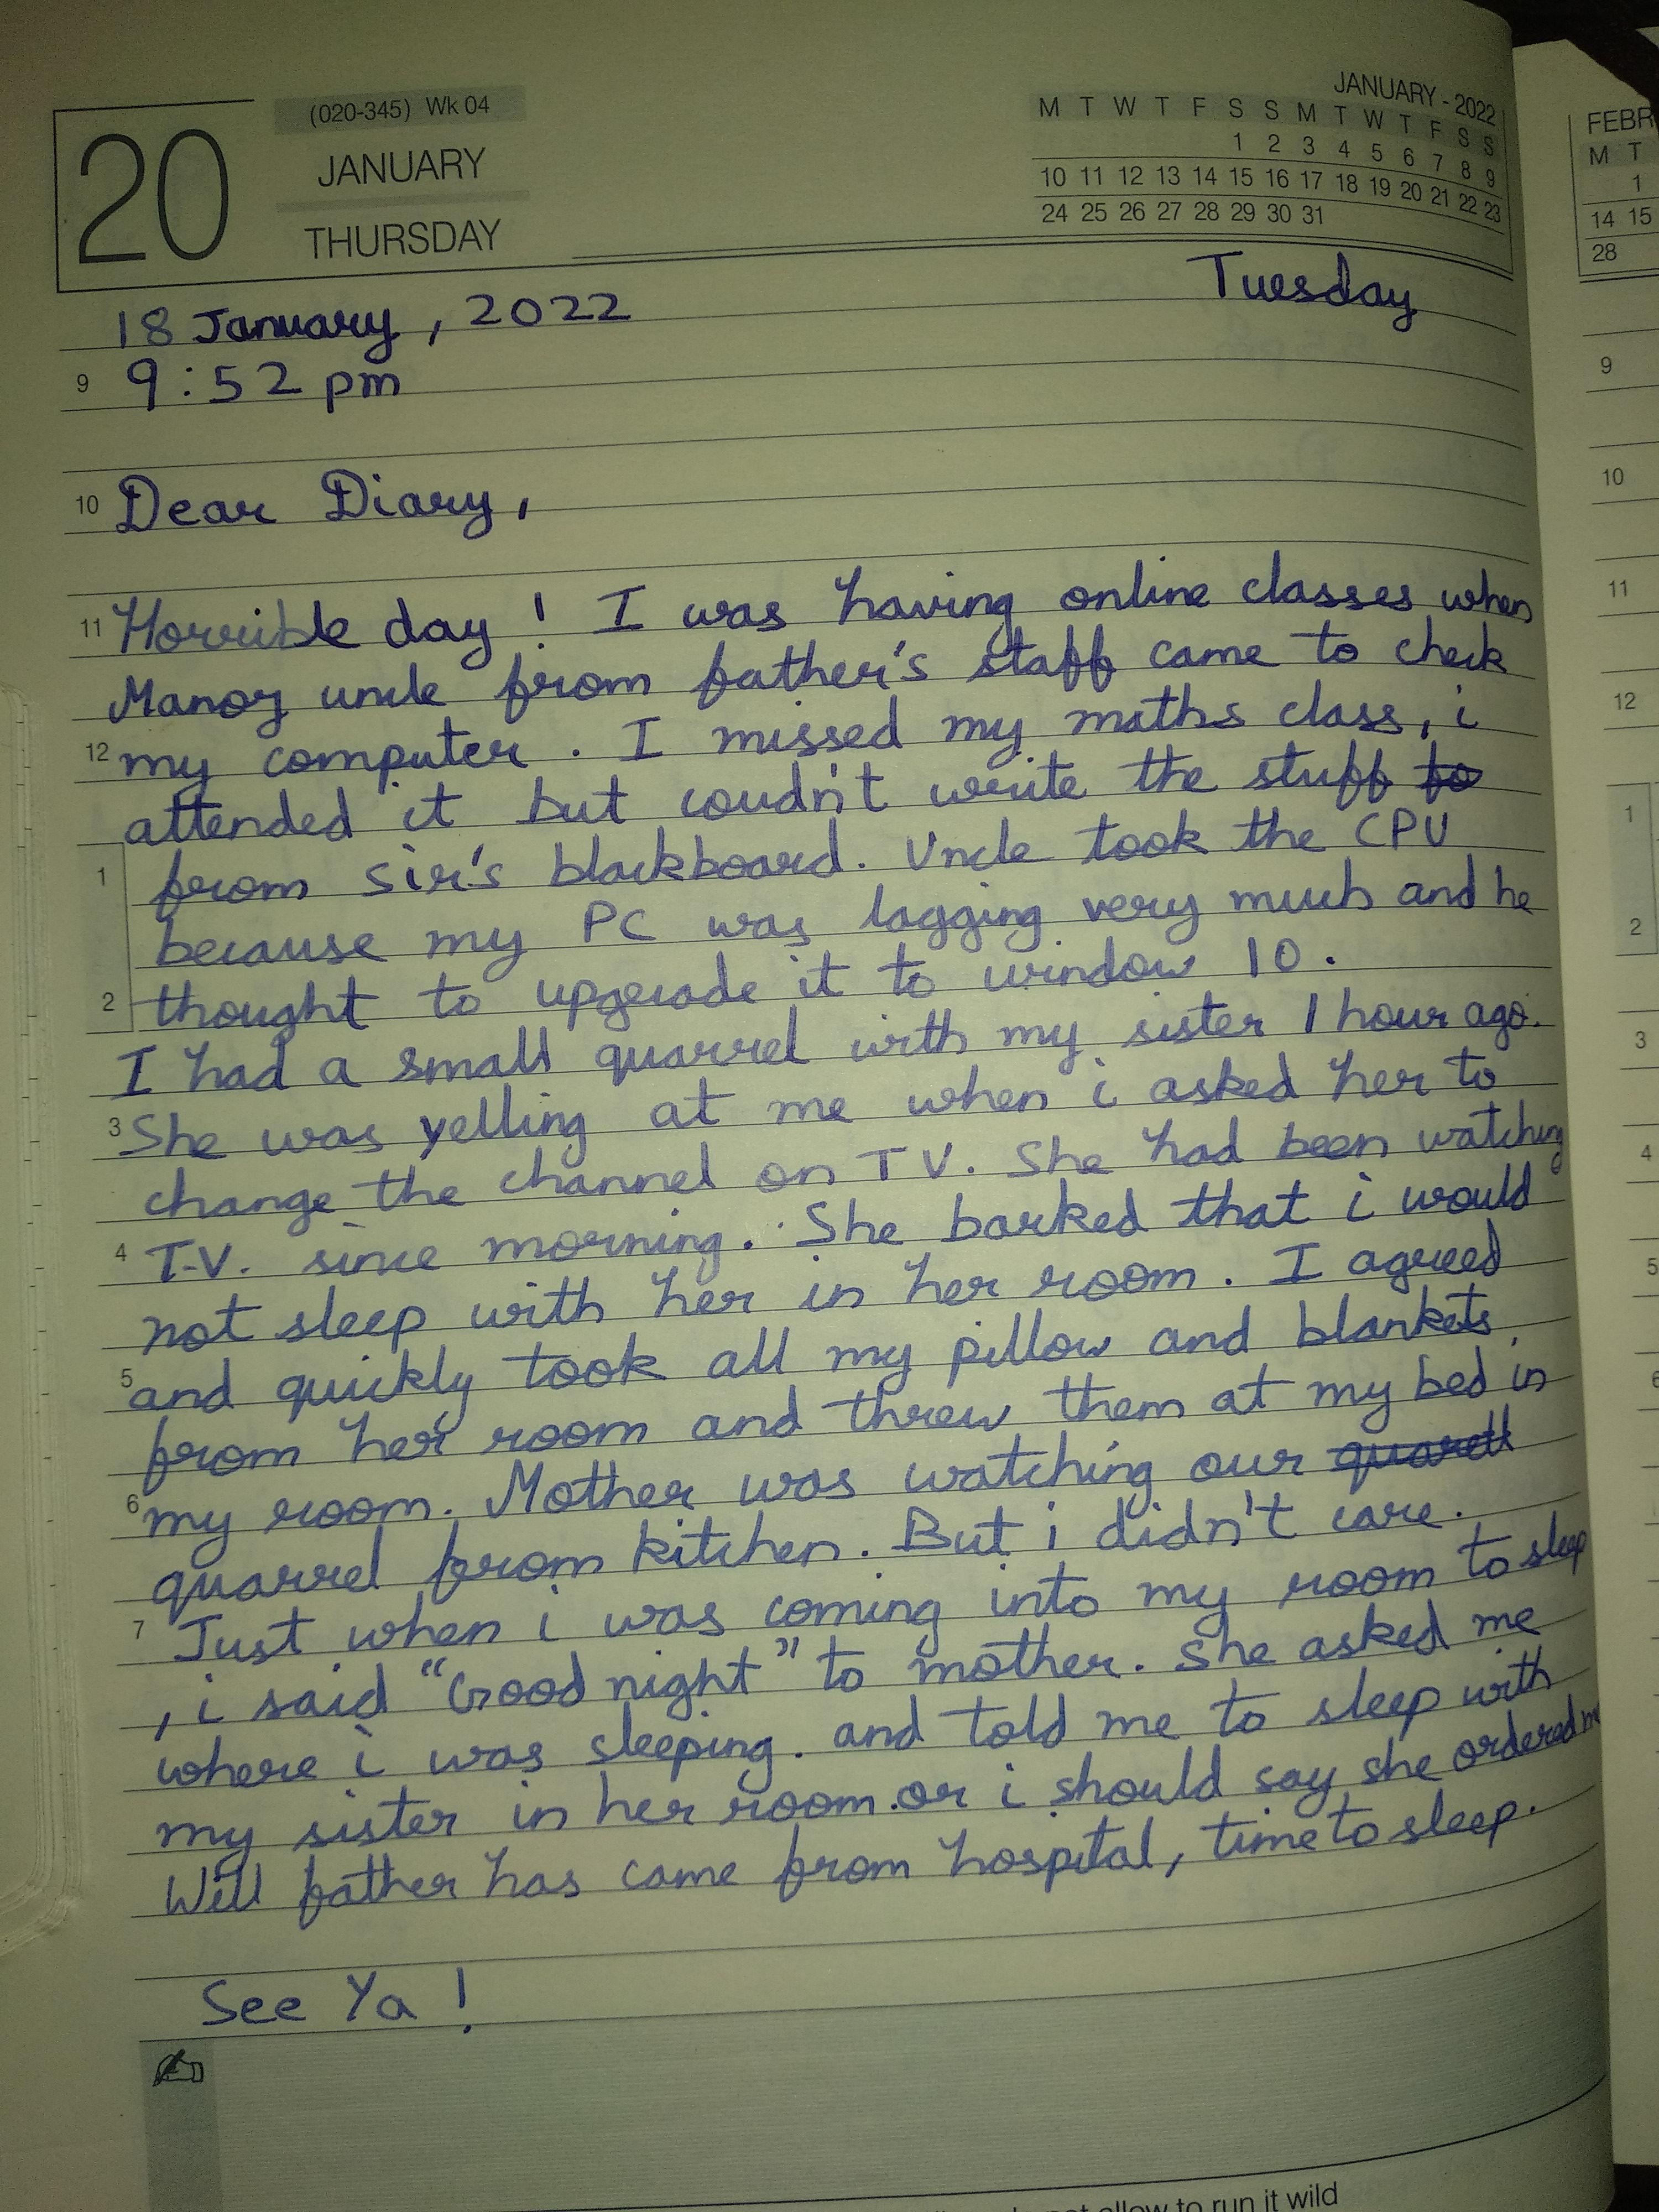 (020-345) Wk 04
20
JANUARY
THURSDAY
JANUARY - 2022
M T W T F S S M T W T F S S
1 2 3 4 5 6 7 8 9
10 11 12 13 14 15 16 17 18 19 20 21 22 23
24 25 26 27 28 29 30 31
FEBR
M T
1
14 15
28
Tuesday
18 January, 2022
9 9:52 pm
10 Dear Diary,
11 Horrible day! I was having online classes when
Manoz uncle from father's staff came to check
12 my computer. I missed my maths class, i
attended it but coudn't write the stuff to
1 from sir's blackboard. Uncle took the CPU
because my PC was lagging very much and he
2 thought to upgrade it to window 10.
I had a small quarrel with my sister 1 hour ago.
3 She was yelling at me when i asked her to
change the channel on TV. She had been watching
4 T.V. since morning. She barked that i would
not sleep with her in her room. I agreed
5 and quickly took all my pillow and blankets
from her room and threw them at my bed in
6 my room. Mother was watching our quarell
quarrel from kitchen. But i didn't care.
7 Just when i was coming into my room to sleep
, i said "Good night" to mother. She asked me
where i was sleeping. and told me to sleep with
my sister in her room. or i should say she ordered
Well father has came from hospital, time to sleep.
See Ya!
allow to run it wild
9
10
11
12
1
2
3
4
5
6